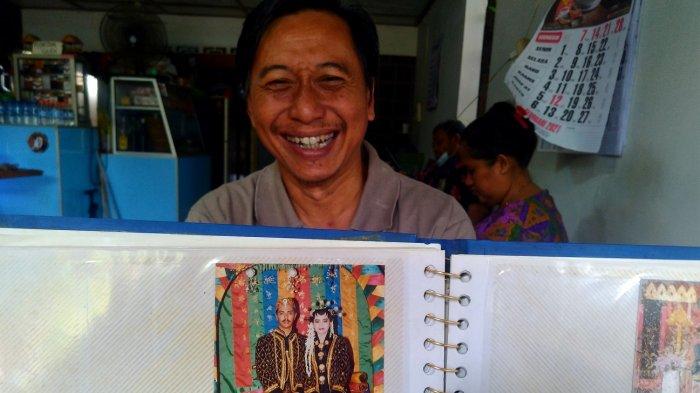 MINGGU 7 14 21 28
SENIN 1 8 15 22
SELASA 2 9 16 23
RABU 3 10 17 24
KAMIS 4 11 18 25
5 12 19 26
6 13 20 27
RUARI 2021